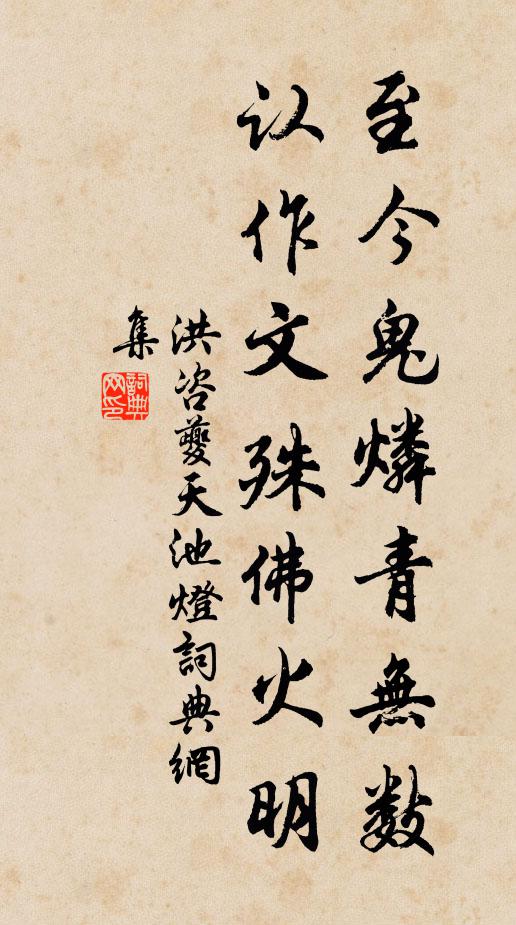 至今鬼燐青無数
认作文殊佛火明
洪咨夔天池燈詞典網
集
詞典
网印